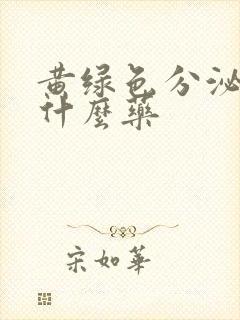 黄绿色分泌
什麼藥
宋如華